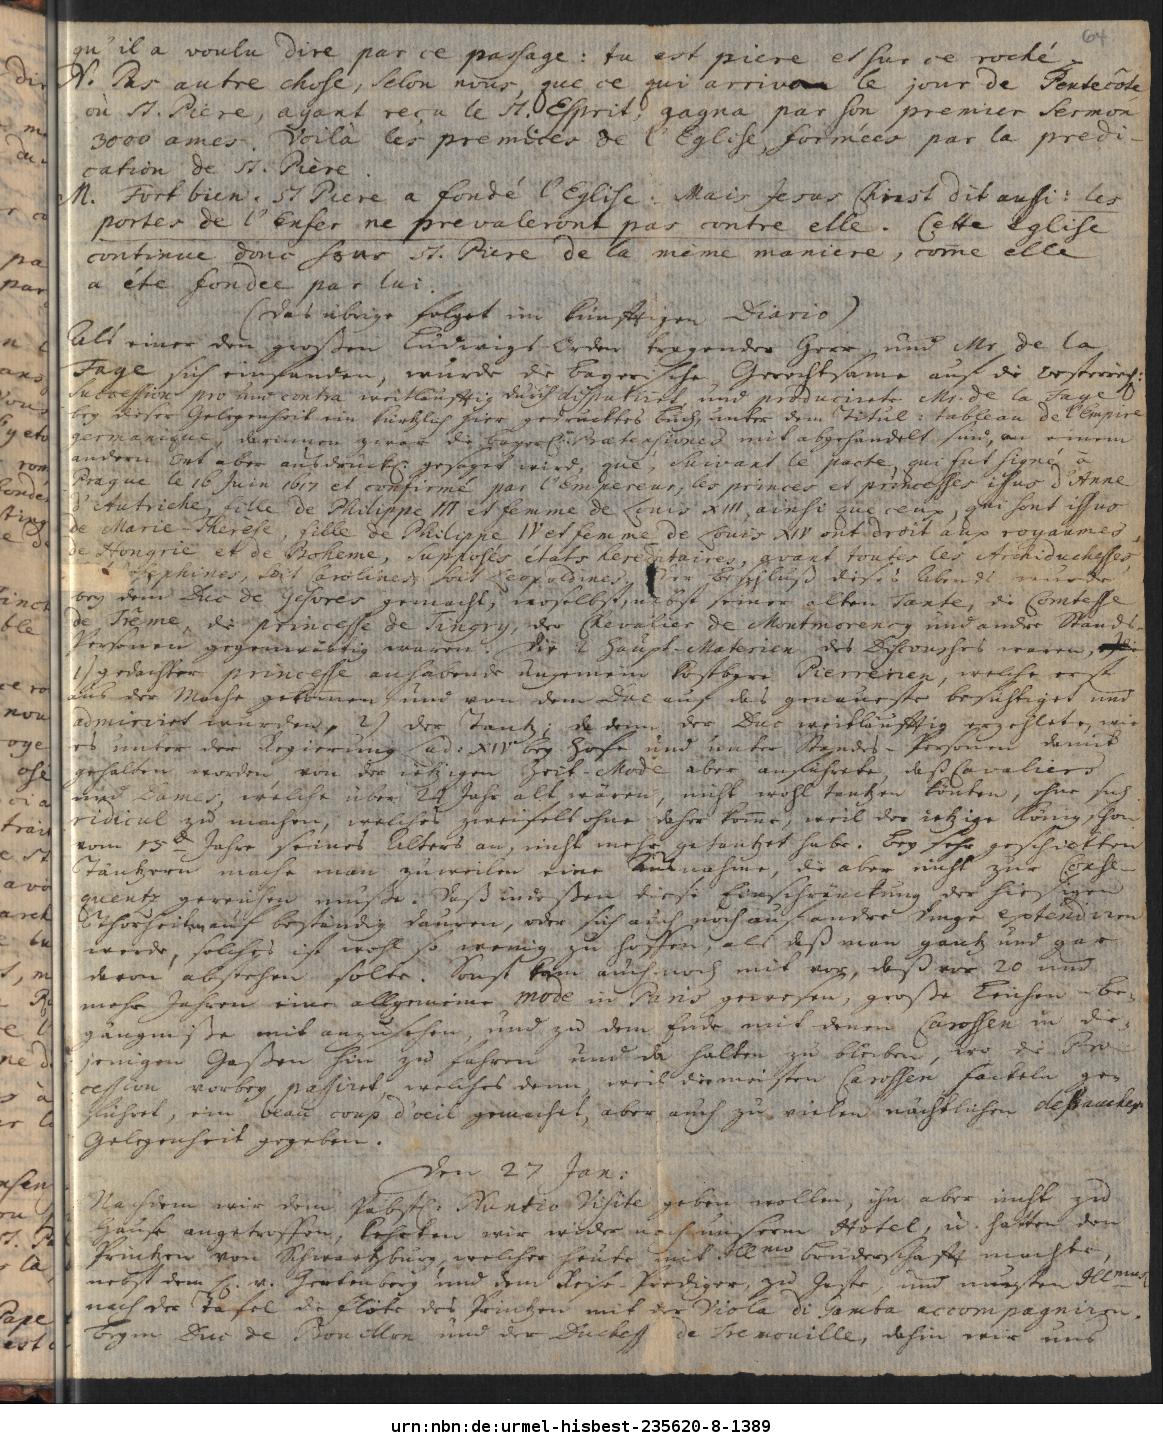 64
qu'il a voulu dire par ce passage: tu est piere et sur ce roché.
N. Pas autre chose, selon nous, que ce qui arriva le jour de Pentecôte
où St. Piere, ayant reçu le St. Esprit, gagna par son premier Sermon
3000 ames. Voilà les premices de l'Eglise, formées par la predi-
cation de St. Pière.
M. Fort bien. St Piere a fondé l'Eglise. Mais Jesus Christ dit aussi: les
portes de l'Enfer ne prevaleront pas contre elle. Cette Eglise
continue donc sous St. Piere de la même maniere, come elle
a éte fondée par lui.
(das übrige folget im künfftigen Diario)
Als einer den großen Ludwigs-Orden tragender Herr, und Mr. de la
Faye sich einfanden, wurde die bayerische Gerechtsame auf die oesterreich:
Succession pro und contra weitläufftig durch disputiret, und producirete Mr. de la Faye
bey dieser Gelegenheit ein kürtzlich hier gedrucktes buch, unter dem Titul: tableau de l'Empire
germanique, darinnen zwar die bayerischen Praetensiones mit abgehandelt sind, an einem
andern Ort aber ausdrückl: gesaget wird, que, suivant le pacte, qui fut signé à
Prague le 16 Juin 1617 et confirmé par l'Empereur, les princes et princesses issus d'Anne
d'Autriche, fille de Philippe III et femme de Louis XIII, ainsi que ceux, qui sont issus
de Marie-Therese, fille de Philippe IV et femme de Louis XIV ont droit aux royaumes
de Hongrie et de Boheme, supposés états hereditaires, avant toutes les Archiduchesses,
Josephines, soit Carolines, soit Leopoldines. Der Beschluß dises Abends wurde
bey dem Duc de Gesvres gemacht, woselbst, nebst seiner alten Tante, die Comtesse
de Trême, die princesse de Tingry, der Chevalier de Montmorency und andre Stands-
Personen gegenwärtig waren. Die 2 Haupt-Materien des Discourses waren,
1) gedachter princesse anhabende ungemein kostbare Pierrerien, welche erst
aus der Mache gekommen, und von dem Duc auf das genaueste besichtiget und
admiriret wurden, 2) der Tantz; da denn der Duc weitläufftig erzehlete, wie
es unter der Regierung Lud: XIV bey Hofe und unter Standes-Personen damit
gehalten worden, von der ietzigen Zeit-Mode aber anführete, daß Cavaliers
und Dames, welche über 24 Jahr alt wären, nicht wohl tantzen könten, ohne sich
ridicul zu machen, welches zweifelsohne daher kome, weil der ietzige König schon
vom 15den Jahre seines Alters an, nicht mehr getantzet habe. Bey sehr geschickten
Täntzern mache man zuweilen eine Ausnahme, die aber nicht zur Conse-
quentz gereichen müße. Daß indeßen diese Einschränckung der hiesigen
Thorheiten auf beständig dauren, oder sich auch noch auf andre Dinge extendiren
werde, solches ist wohl so wenig zu hoffen, als daß man gantz und gar
davon abstehen solte. Sonst kam auch noch mit vor, daß vor 20 und
mehr Jahren eine allgemeine mode in Paris gewesen, große Leichen-be-
gängniße mit anzusehen, und zu dem Ende mit denen Carossen in die-
jenigen Gaßen hin zu fahren und da halten zu bleiben, wo die Pro-
cession vorbey passiret, welches denn, weil die meisten Carossen Fackeln ge-
führet, ein beau coup d'oeil gemachet, aber auch zu vielen nächtlichen debauchen
Gelegenheit gegeben.
Den 27 Jan:
Nachdem wir dem Päbstl: Nuntio Visite geben wollen, ihn aber nicht zu
Hause angetroffen, kehrten wir wider nach unserm Hotel, u. hatten den
Printzen von Schwartzburg, welcher heute mit Illmo brüderschafft machte,
nebst dem H. v. Geutenberg und dem Reise-Prediger, zu Gaste, und musten Illmus
nach der Tafel die Flöte des Printzen mit der Viola di Gamba accompagniren.
Beym Duc de Bouillon und der Duchesse de Tremouille, dahin wir uns
urn:nbn:de:urmel-hisbest-235620-8-1389